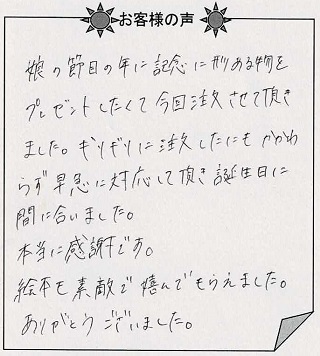 お客様の声
娘の節目の年に記念に形ある物を
プレゼントしたくて今回注文させて頂き
ました。ギリギリに注文したにもかかわ
らず早急に対応して頂き誕生日に
間に合いました。
本当に感謝です。
絵本も素敵で喜んでもらえました。
ありがとうございました。